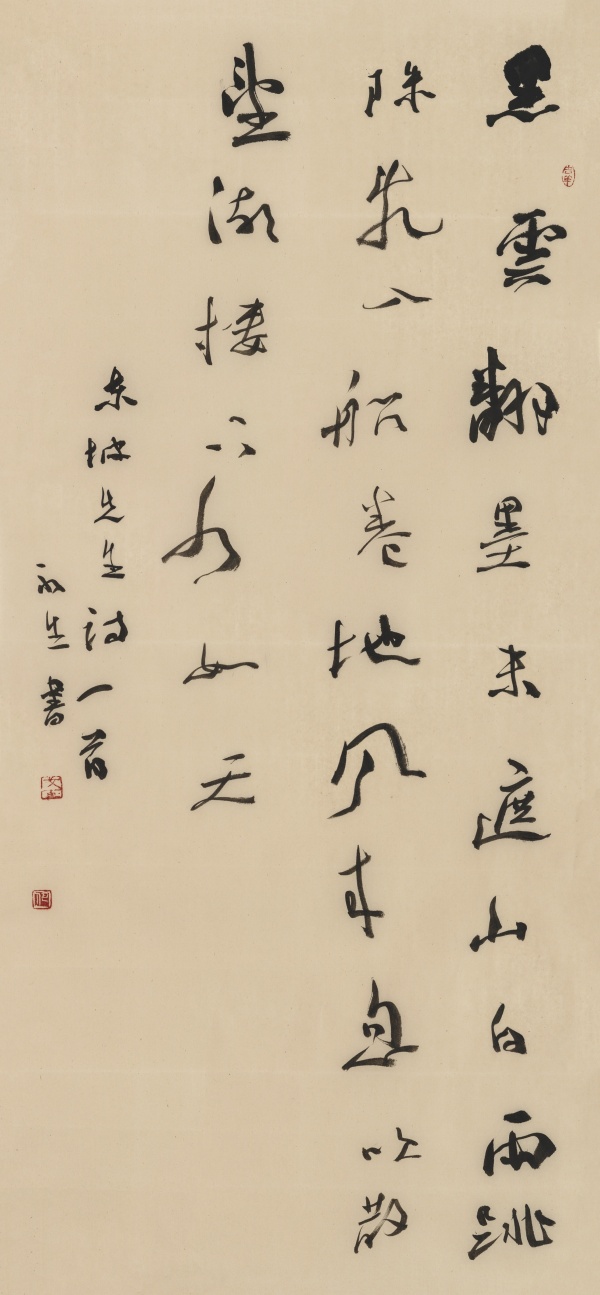 黑雲翻墨未遮山白雨跳
珠亂入船卷地風來忽吹散
望湖樓下水如天
東坡先生詩一首
生書